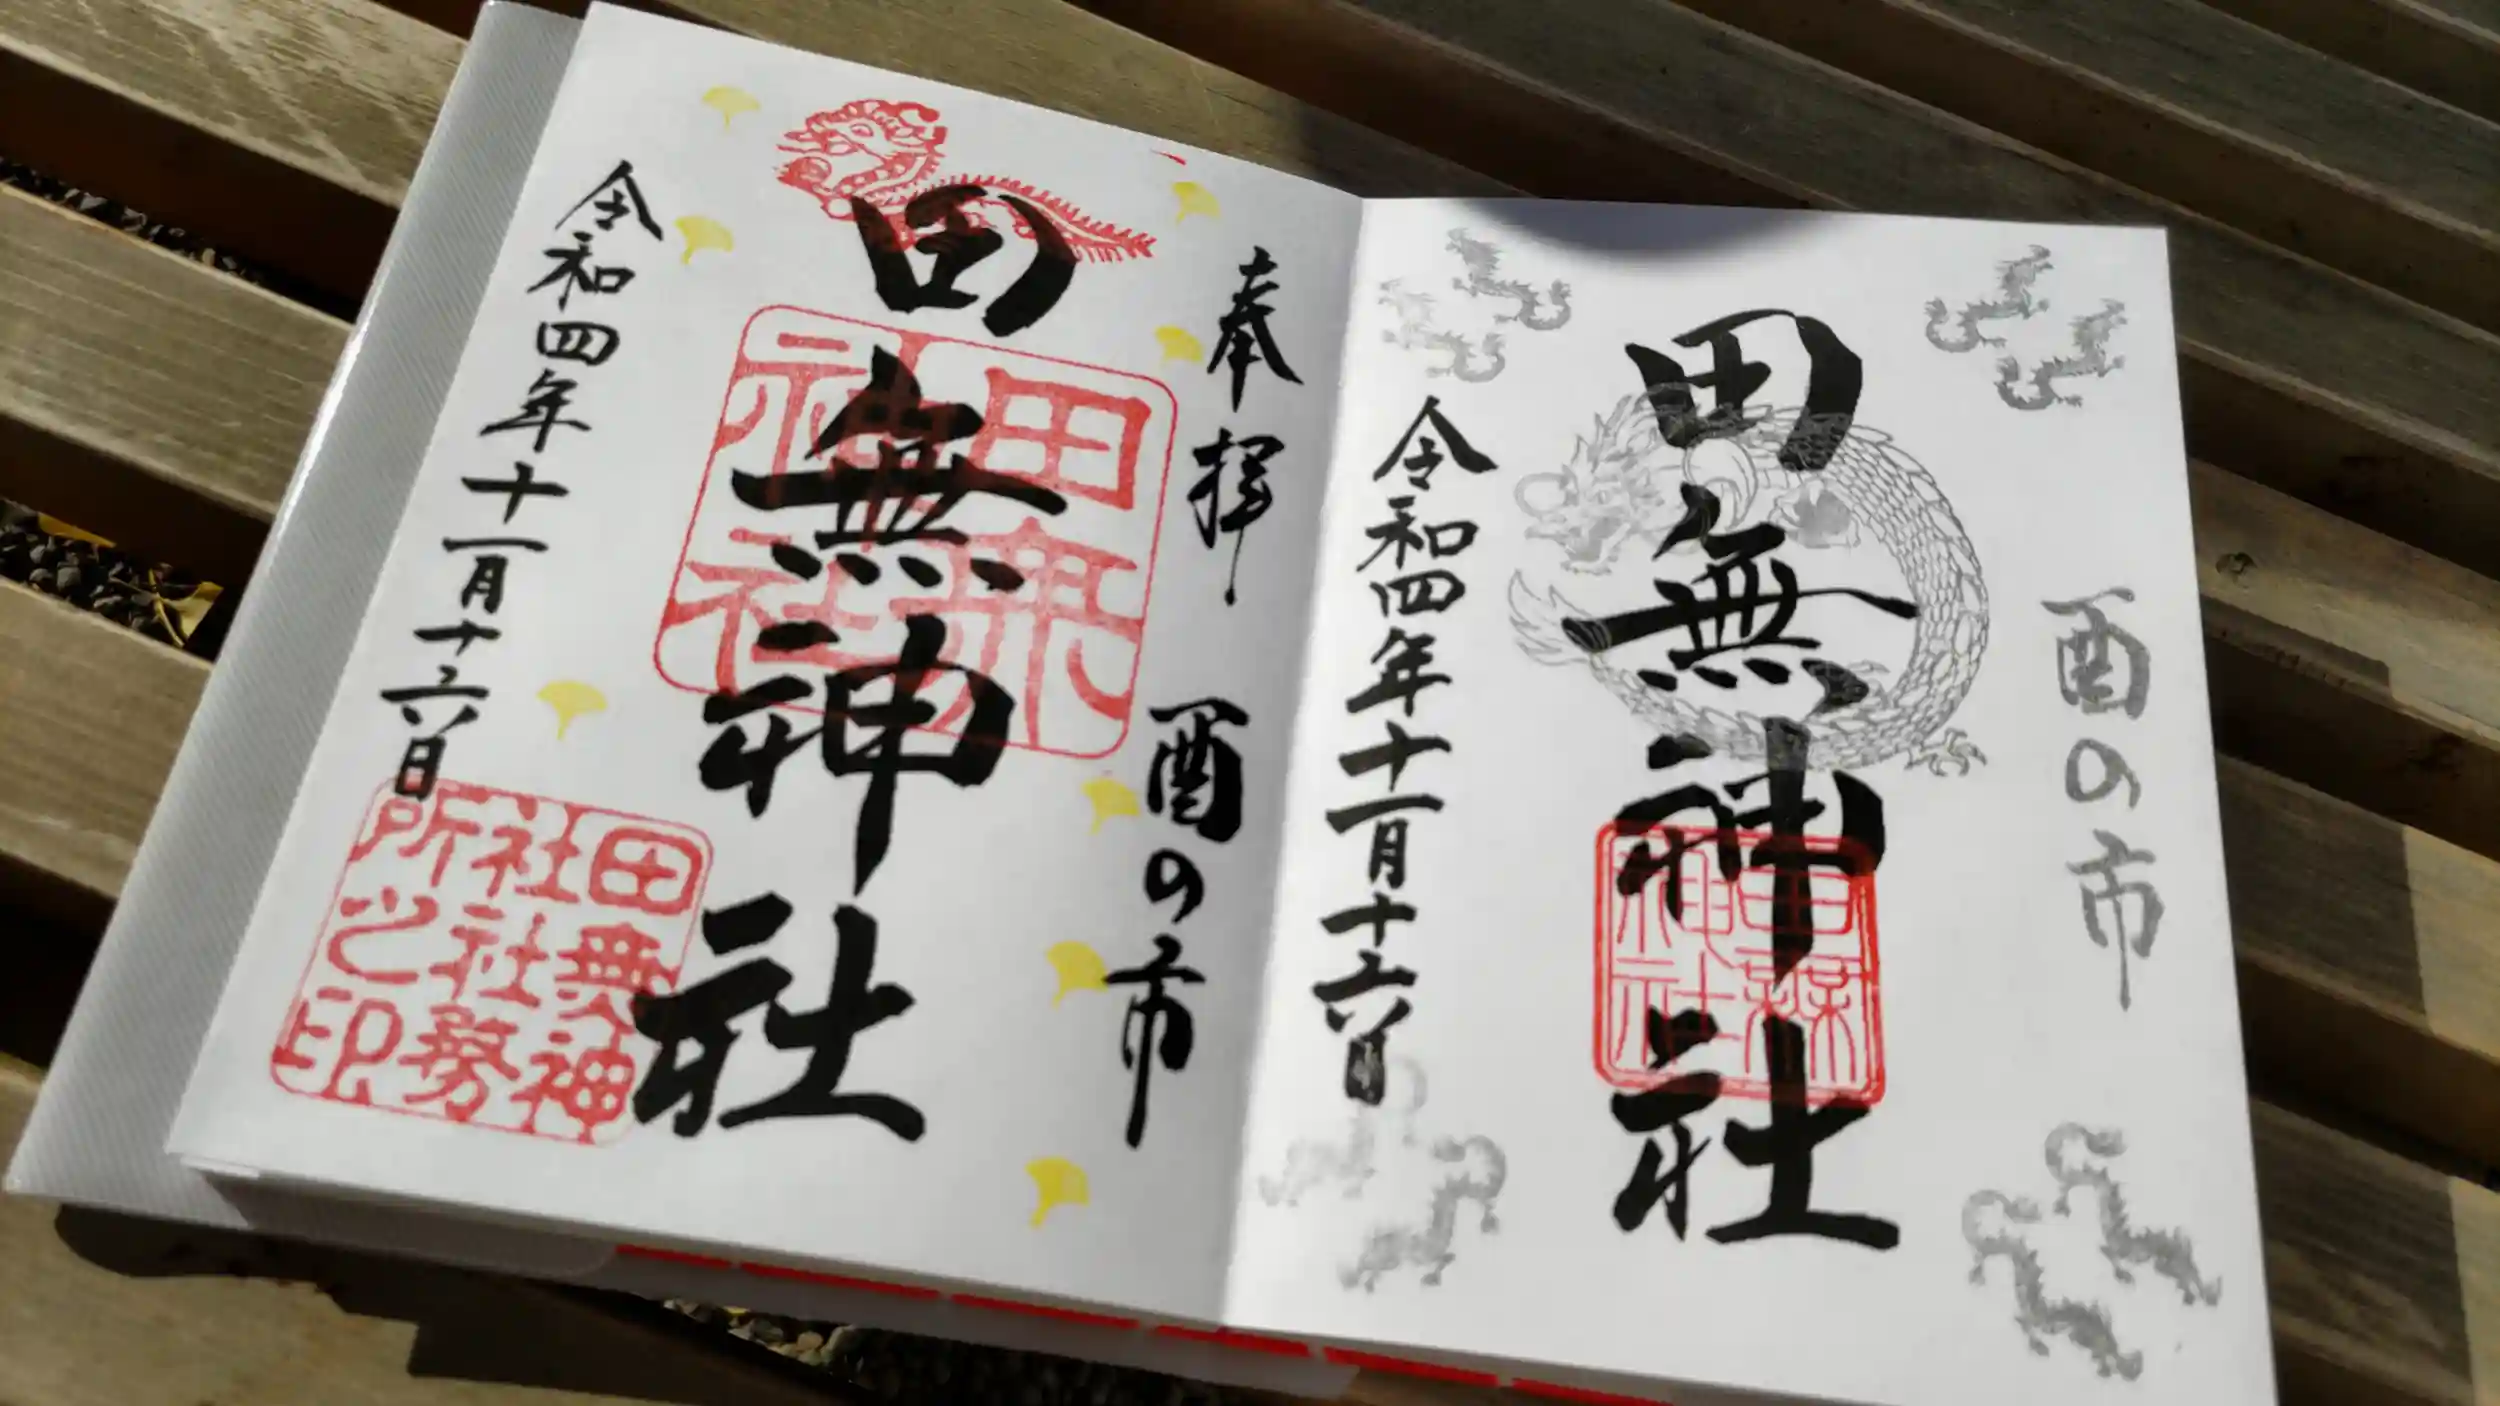 酉の市
田無神社
田無
神社
令和四年十一月十六日
奉拝 酉の市
田無神社
田無
神社
令和四年十一月十六日
田無神
社社務
所之印